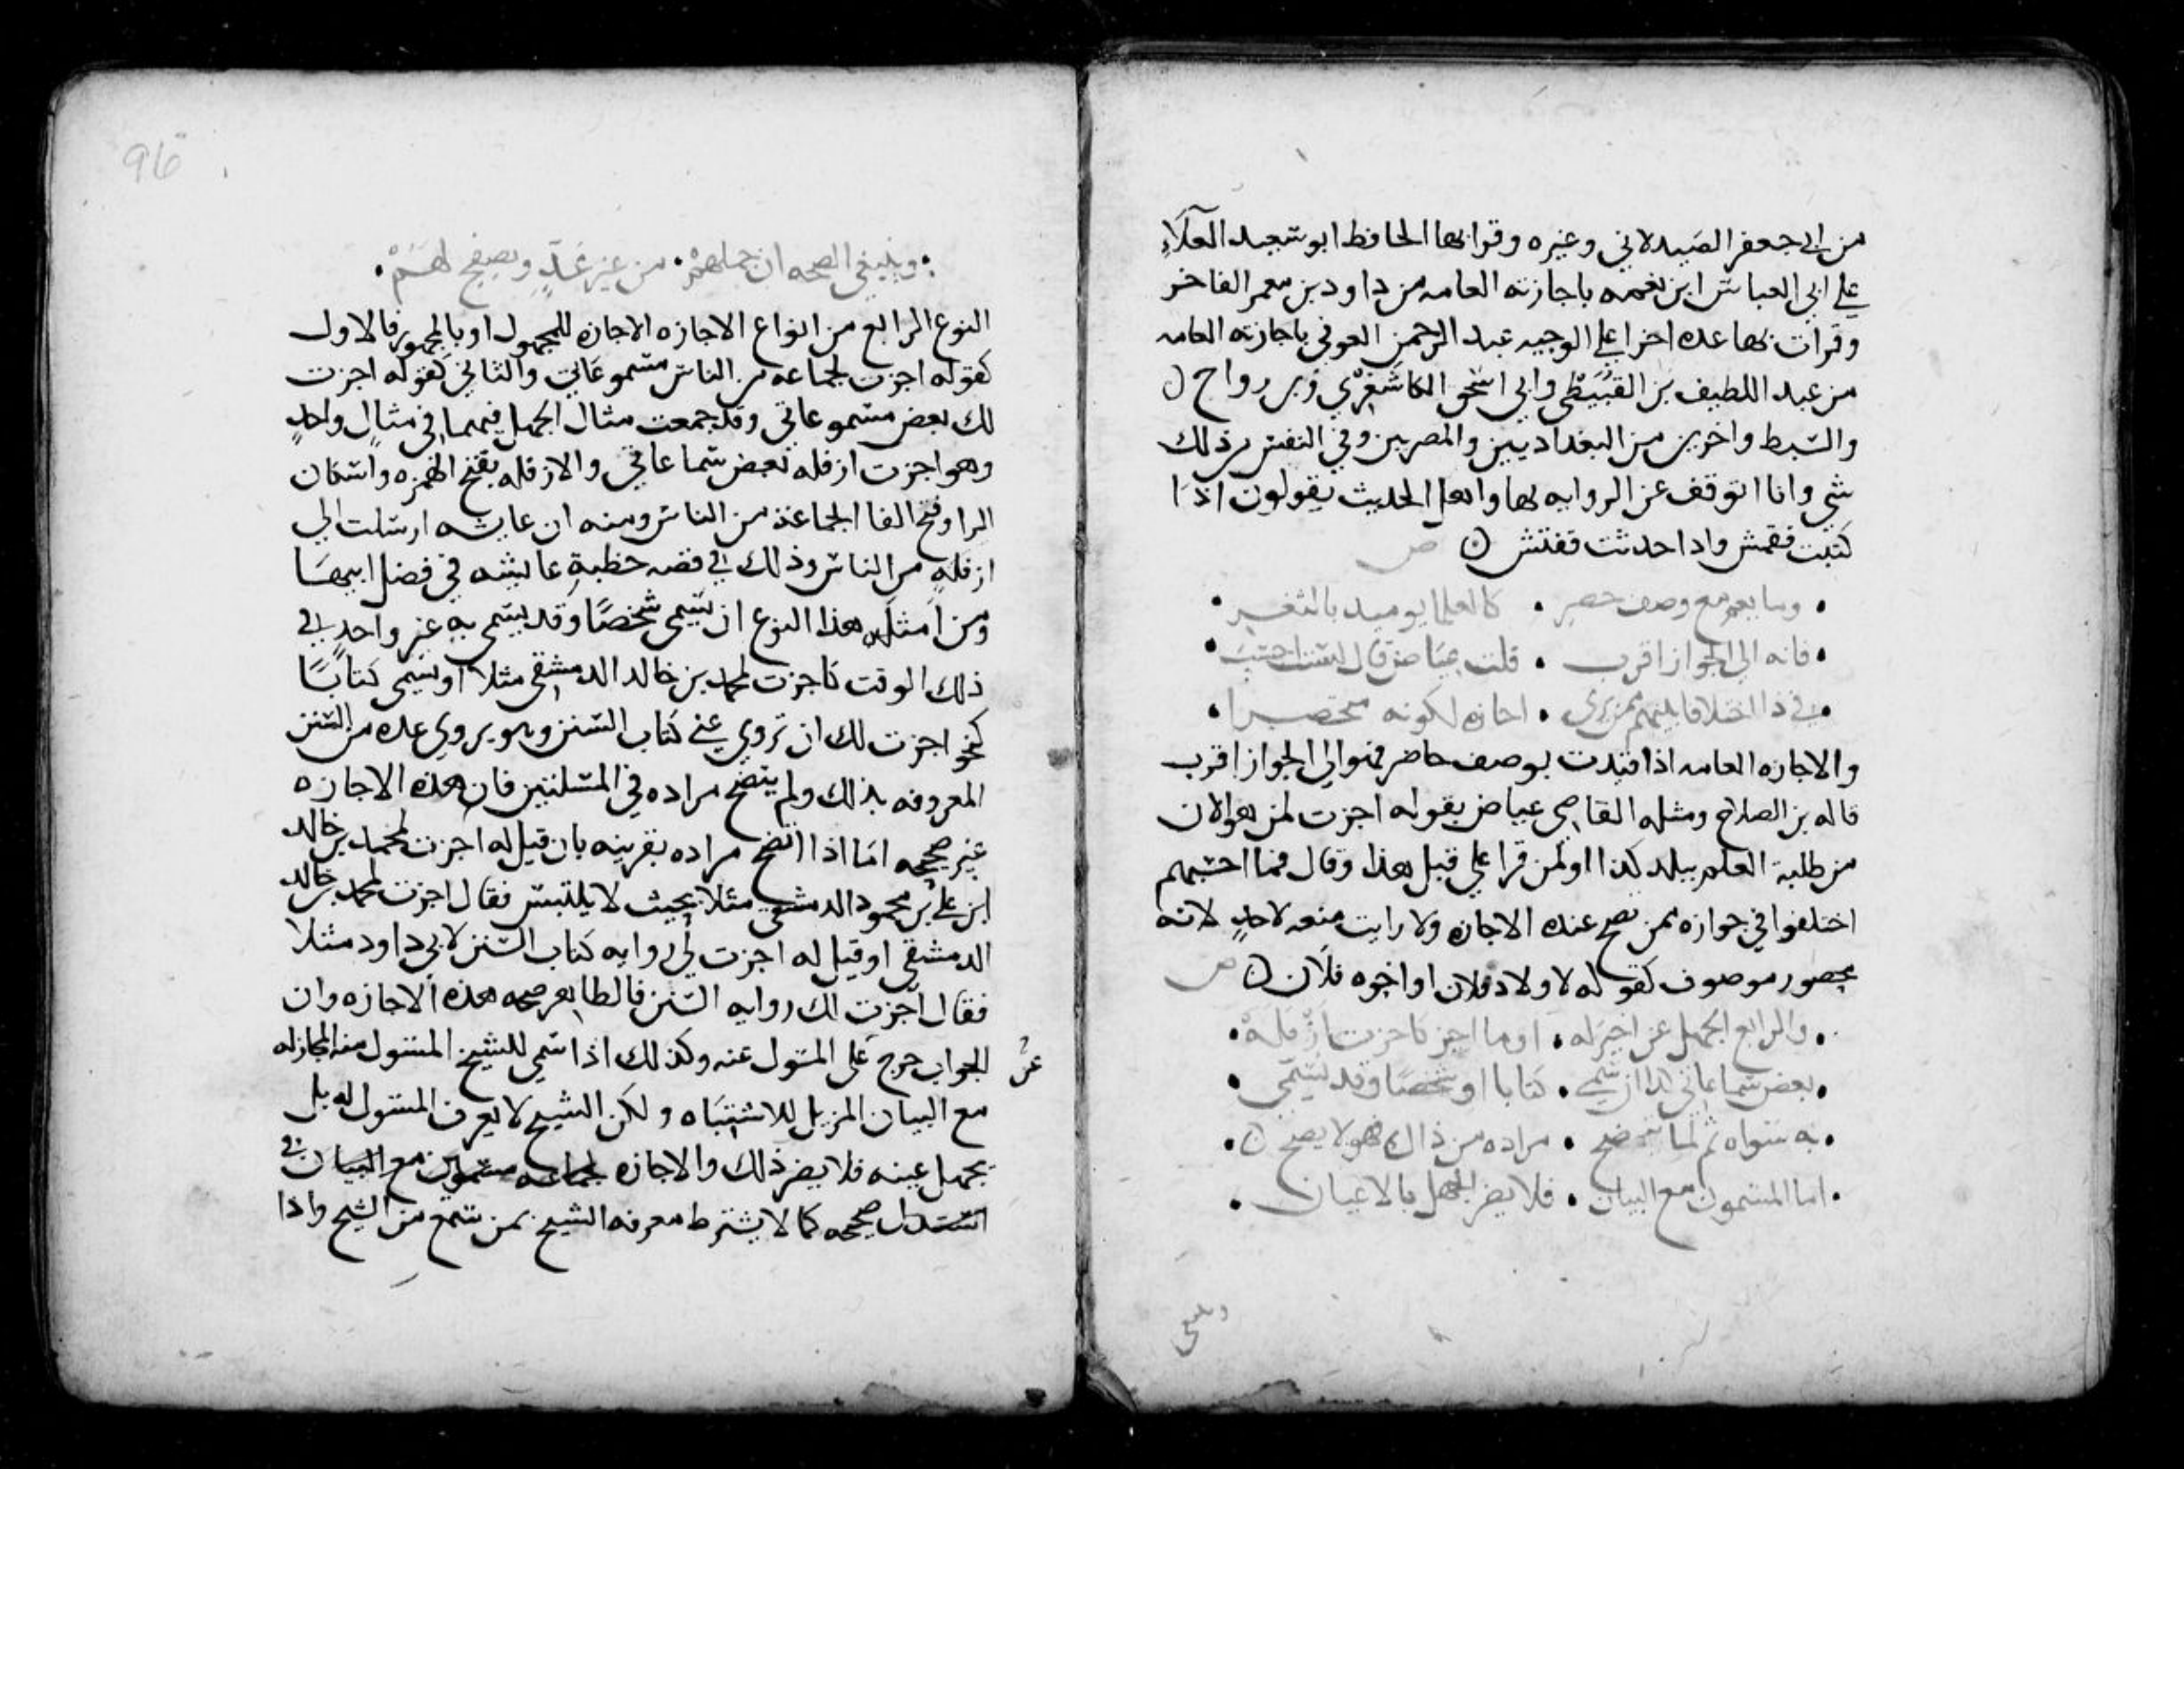 من ابي جعفر الصيدلاني وغيره وقرا بها الحافظ ابو سعيد العلاءِ
علي ابي العباس ابن نعمه باجازته العامه من داود بن معمر الفاخر
وقرات بها عده اجزا علي الوجيه عبد الرحمن العوفي باجازته العامه
من عبد اللطيف بن القُبَّيْطي وابي اسحق الكاشغري وبن رواج
والسبط واخرين من البغداديين والمصريين وفي النفس من ذلك
شي وانا اتوقف عن الروايه بها واهل الحديث يقولون اذا
كتبت فقمش واذا حدثت ففتش ص
• وما يعم مع وصف حصر • كالعلما يوميد بالثغر •
• فانه الي الجواز اقرب • قلت عياض قال لست احسب •
• في ذا اختلافا بينهم ممن يري • اجازه لكونه منحصرا •
والاجازه العامه اذا قيدت بوصف حاضر فهو الي الجواز اقرب
قاله بن الصلاح ومثله القاضي عياض بقوله اجزت لمن هو الان
من طلبة العلم ببلد كذا او لمن قرا علي قبل هذا وقال فما احسبهم
اختلفوا في جوازه ممن تصح عنده الاجازه ولا رايت منعه لاحدٍ لانه
محصور موصوف كقوله لاولاد فلان او اخوه فلان ص
• والرابع الجهل بمن اجيز له • او ما اجيز كاجزت ازفله •
• بعض سماعاتي كذا ان سمي • كتابا او شخصا وقد تسمي •
• به سواه ثم لما يتضح • مراده من ذاك فهو لا يصح •
• اما المسمون مع البيان • فلا يضر الجهل بالاعيان •
وينبغي
96
• وينبغي الصحه ان جملهم • من غير عدٍّ وتصفح لهم •
النوع الرابع من انواع الاجازه الاجازه للمجهول او بالمجهور فالاول
كقوله اجزت لجماعه من الناس مسموعاتي والثاني كقوله اجزت
لك بعض مسموعاتي وقد جمعت مثال الجهل فيهما في مثالٍ واحدٍ
وهو اجزت ازفله بعض سماعاتي والازفله بفتح الهمزه واسكان
الزا وفتح الفا الجماعة من الناس ومنه ان عايشه ارسلت الي
ازفلةٍ من الناس وذلك في قصه خطبةِ عايشه في فضل ابيهَا
ومن امثله هذا النوع ان يُسمي شخصًا وقد يسمي به غير واحدٍ في
ذلك الوقت كاجزت لمحمد بن خالد الدمشقي مثلا او يسمي كتابًا
كنحو اجزت لك ان تروي عني كتاب السنن وهو يروي عده من السنن
المعروفه بذلك ولم يتضح مراده في المسلتين فان هذه الاجازه
غير صحيحه امّا اذا اتضح مراده بقرينه بان قيل له اجزت لمحمد بن خالد
ابن علي بن محمود الدمشقي مثلا بحيث لا يلتبس فقال اجزت لمحمد بن خالد
الدمشقي او قيل له اجزت لي روايه كتاب السنن لابي داود مثلا
فقال اجزت لك روايه السنن فالظاهر صحه هذه الاجازه وان
الجواب خرج على المسول عنه وكذلك اذا سمي للشيخ المسول منه المجاز له
مع البيان المزيل للاشتباه ولكن الشيخ لا يعرف المسول له بل
يجهل عينه فلا يضر ذلك والاجازه لجماعه مسمون مع البيان في
صحيحه كما لا يشترط معرفه الشيخ بمن سمع من الشيخ واذا